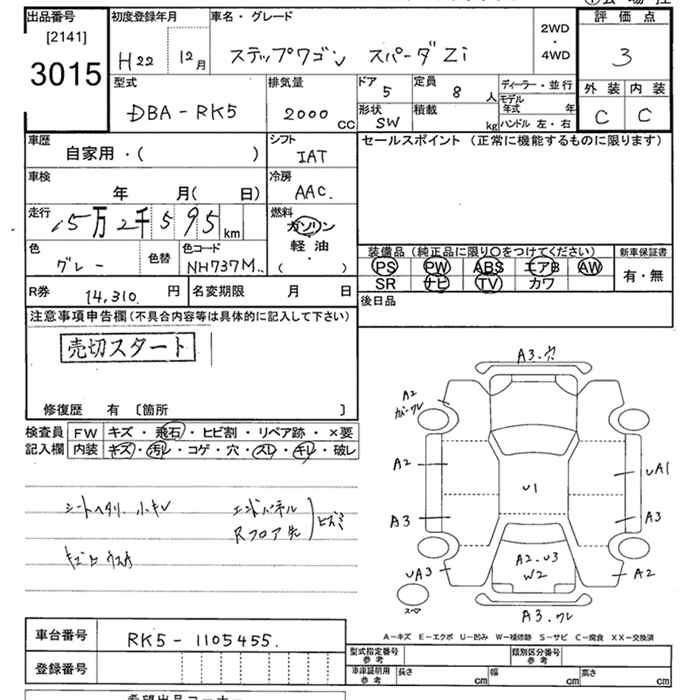 出品番号
[2141]
3015
初度登録年月
H22 12月
車名・グレード
ステップワゴン スパーダZi
2WD
・
4WD
評価点
3
外装 内装
C C
型式
DBA-RK5
排気量
2000 cc
ドア
5
定員
8 人
形状
SW
積載
kg
ディーラー・並行
モデル年式 年
ハンドル 左・右
車歴
自家用・( )
シフト
IAT
車検
年 月( 日)
冷房
AAC.
走行
15万2千595km
燃料
ガソリン
軽油
・( )
色
グレー
色替
色コード
NH737M
セールスポイント (正常に機能するものに限ります)
装備品 (純正品に限り○をつけてください)
PS PW ABS エアB AW
SR ナビ TV カワ
新車保証書
有・無
R券
14,310. 円
名変期限 月 日
後日品
注意事項申告欄(不具合内容等は具体的に記入して下さい)
売切スタート
修復歴 有 〔箇所 〕
検査員記入欄
FW キズ・飛石・ヒビ割・リペア跡・×要
内装 キズ・汚レ・コゲ・穴・スレ・キレ・破レ
シートヘタリ 小キレ
エンドパネル
Rフロア先
A3.穴
A2
A2
U1
UA1
A3
A3
UA3
A2.U3
W2
A2
スペア
A3.ワレ
A−キズ E−エクボ U−凹み W−補修跡 S−サビ C−腐食 XX−交換済
車台番号
RK5-1105455.
登録番号
型式指定番号
参考
類別区分番号
参考
車庫証明用
参考
長さ cm
幅 cm
高さ cm
希望出品コーナー